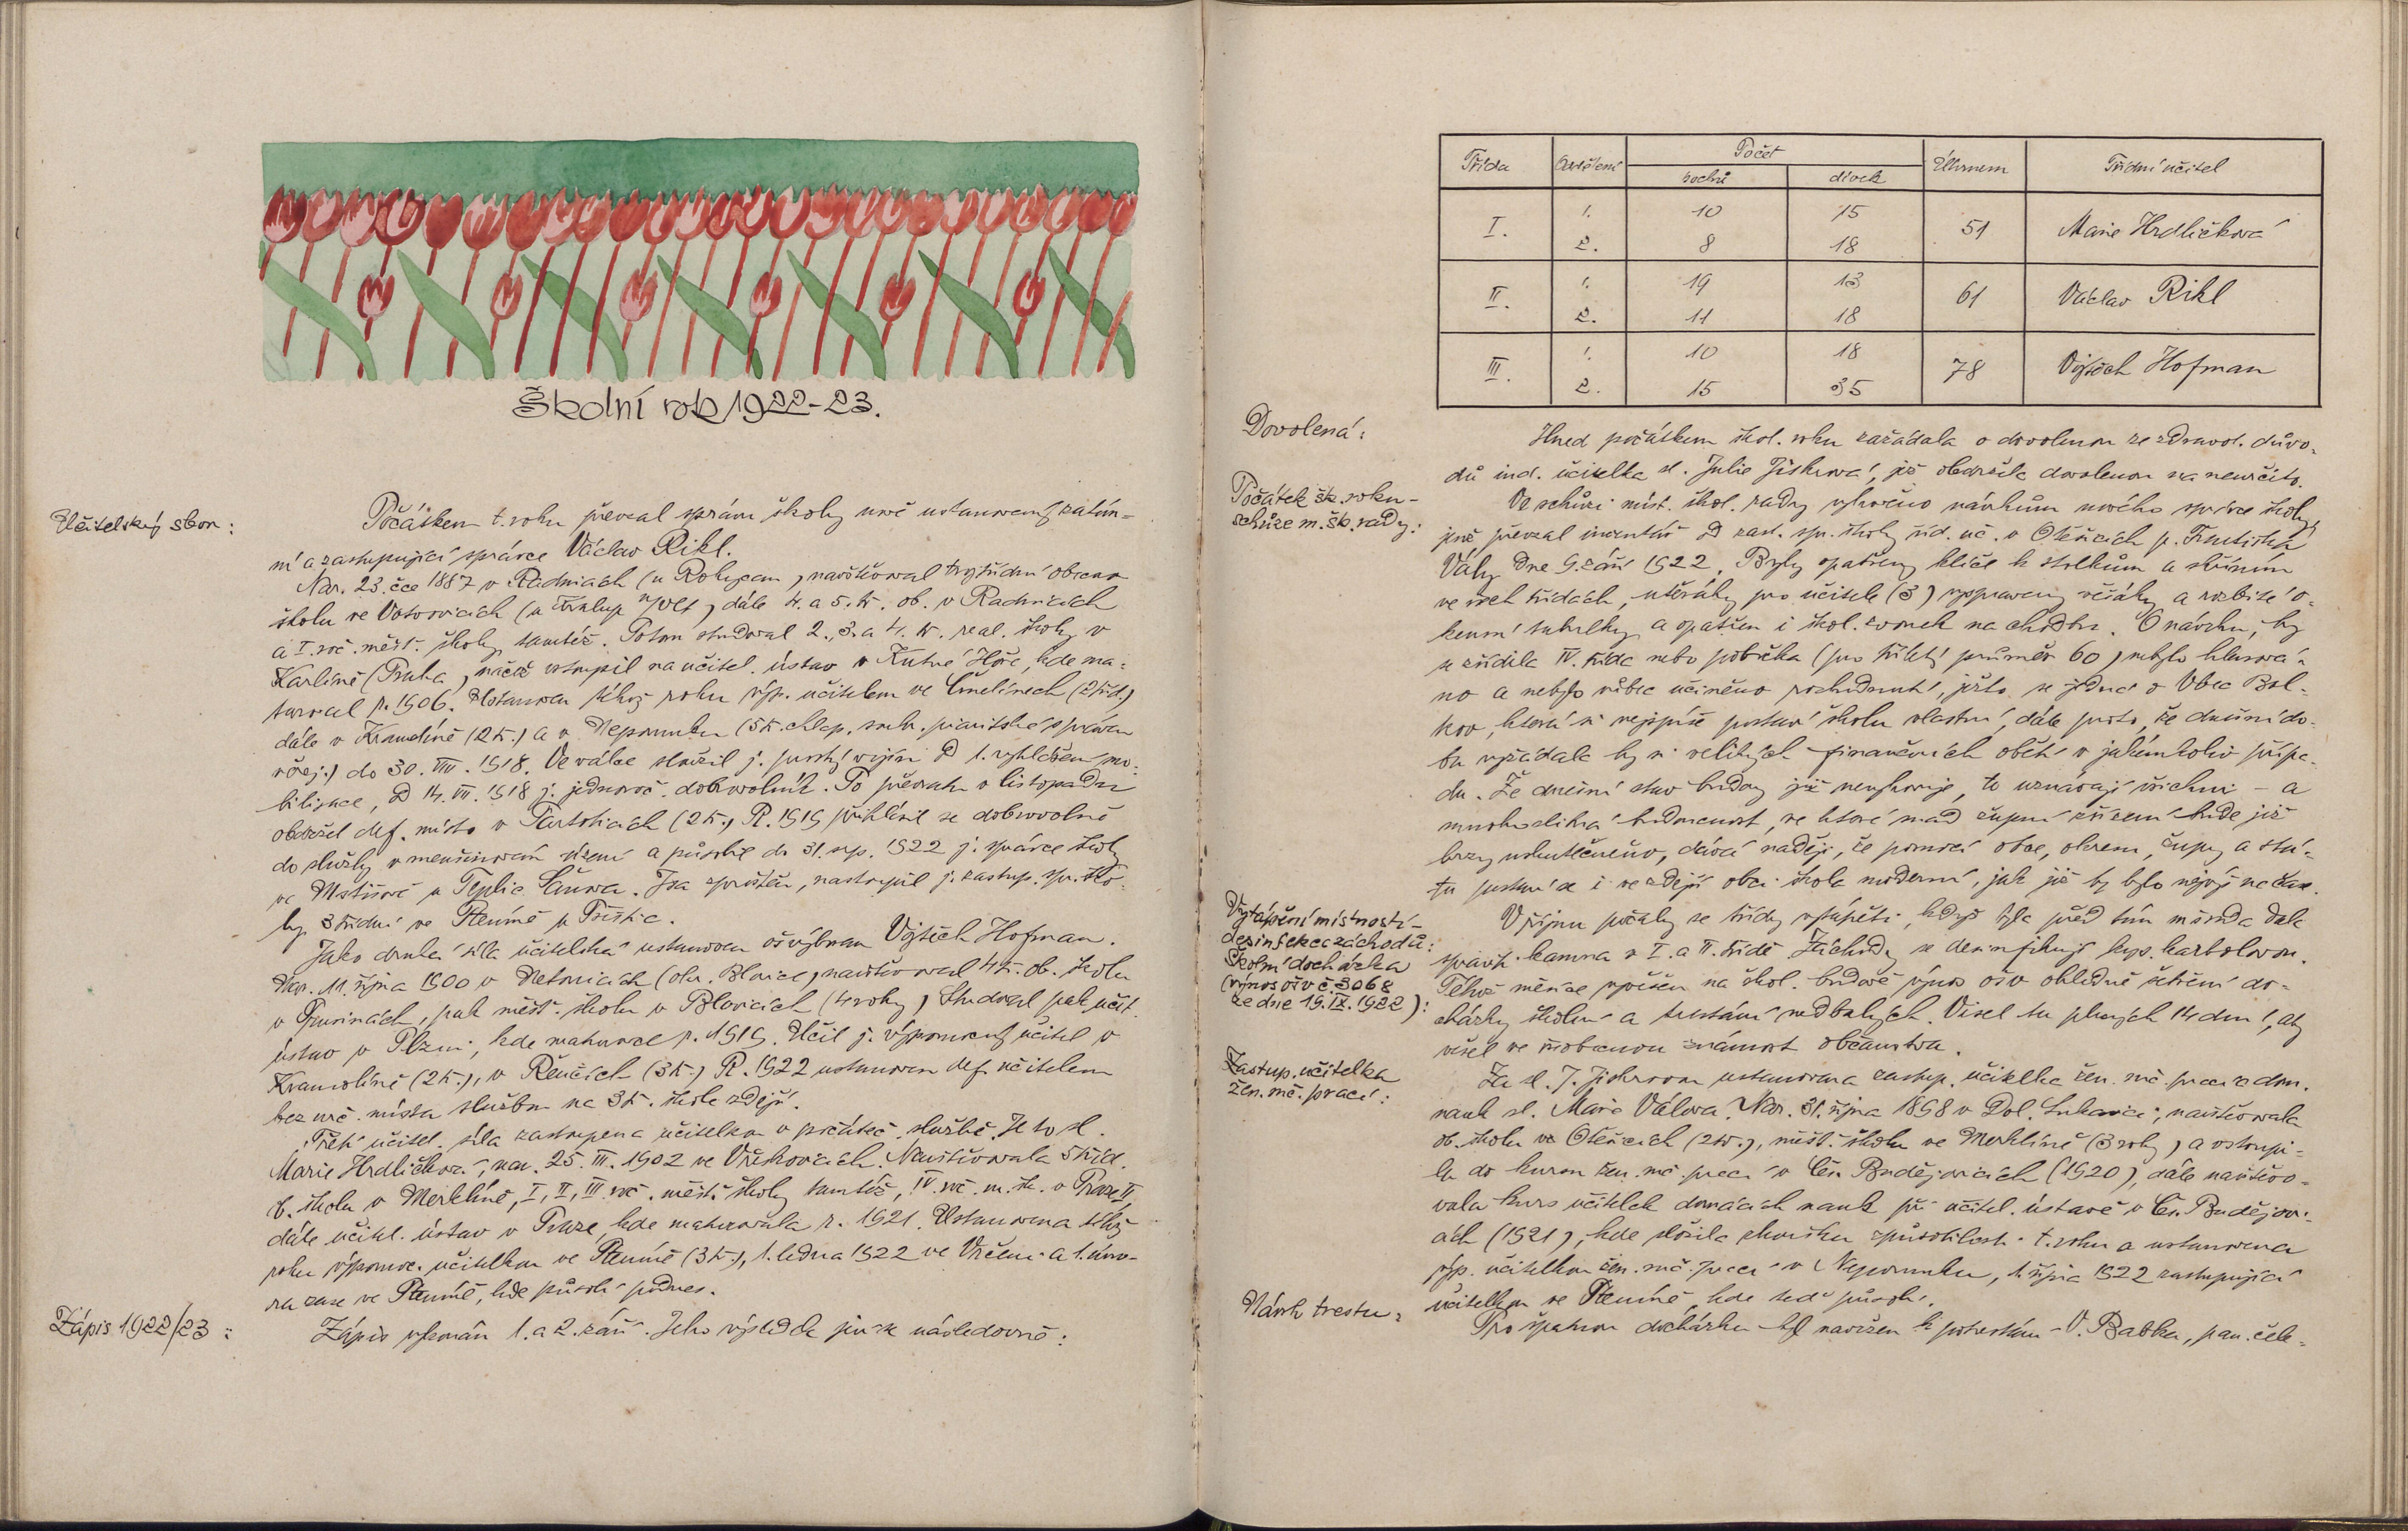 Školní rok 1922-23.
Učitelský sbor:
Počátkem t. roku převzal správu školy nově ustanovený zatím-
ní a zastupující správce Václav Rikl.
Nar. 23. čce 1887 v Radnicích (u Rokycan), navštěvoval trojtřídní obecnou
školu ve Votvovicích (u Kralup n/Vlt), dále 4. a 5. tř. ob. v Radnicích
a I. roč. měšť. školy tamtéž. Potom studoval 2., 3. a 4. tř. real. školy v
Karlíně (Praha), načež vstoupil na učitel. ústav v Kutné Hoře, kde ma-
turoval r. 1906. Ustanoven téhož roku výp. učitelem ve Čmelínech (2tříd.)
dále v Kramolíně (2tř.) a v Nepomuku (5tř. chlap. soukr. piaristské s právem
veřej.) do 30. VIII. 1918. Ve válce sloužil j. prostý vojín od 1. vyhlášení mo-
bilisace, od 14. VII. 1918 j. jednoroč. dobrovolník. Po převratu v listopadu
obdržel def. místo v Partolticích (2tř.) R. 1919 přihlásil se dobrovolně
do služby v menšinovém území a působil do 31. srp. 1922 j. správce školy
ve Mstišově u Teplic Šanova. Jsa zproštěn, nastoupil j. zastup. spr. ško-
ly 3třídní ve Ptenině u Přeštic.
Jako druhá síla učitelská ustanoven ošvýbrem Vojtěch Hofman.
Nar. 11. října 1900 v Netonicích (okr. Blovice), navštěvoval 4tř. ob. školu
v Prusinách, pak měšť. školu v Blovicích (4roky) Studoval pak učit.
ústav v Plzni, kde maturoval r. 1919. Učil j. výpomocný učitel v
Kramolíně (2tř.), v Řenčích (3tř.) R. 1922 ustanoven def. učitelem
bez urč. místa služební na 3tř. škole zdejší.
Třetí učitel. síla zastoupena učitelkou v počáteč. službě. Je to sl.
Marie Hrdličková, nar. 25. III. 1902 ve Vřeskovicích. Navštěvovala 5tříd.
ob. školu v Merklíně, I., II., III. roč. měšť. školy tamtéž, IV. roč. m. šk. v Praze II,
dále učitel. ústav v Praze, kde maturovala r. 1921. Ustanovena téhož
roku výpomoc. učitelkou ve Ptenině (3tř.), 1. ledna 1922 ve Vrčeni a 1. úno-
ra zase ve Ptenině, kde působí podnes.
Zápis 1922/23:
Zápis vykonán 1. a 2. září. Jeho výsledek jeví se následovně:
Třída Oddělení Počet Úhrnem Třídní učitel
hochů dívek
I. 1. 10 15 51 Marie Hrdličková
2. 8 18
II. 1. 19 13 61 Václav Rikl
2. 11 18
III. 1. 10 18 78 Vojtěch Hofman
2. 15 35
Dovolená:
Hned počátkem škol. roku zažádala o dovolenou ze zdravot. důvo-
dů ind. učitelka sl. Julie Jiskrová, jež obdržela dovolenou na neurčito.
Počátek šk. roku -
schůze m. šk. rady:
Ve schůzi míst. škol. rady vyhověno návrhům nového správce školy,
jenž převzal inventář od zast. spr. školy říd. uč. v Otěšicích p. Františka
Vály dne 9. září 1922. Byly opatřeny klíče k stolkům a skříním
ve všech třídách, utěráky pro učitele (3) vypraveny věšáky a rozbité o-
kenní tabulky a opatřen i škol. zvonek na chodbu. O návrhu, by
se zřídila IV. třída nebo pobočka (pro tříletý průměr 60) nebylo hlasová-
no a nebylo vůbec učiněno rozhodnutí, ježto se jedná o Obec Bol-
kov, která si nejspíše postaví školu vlastní, dále proto, že dnešní do-
ba vyžádala by si velikých finančních obětí v jakémkoliv přípa-
du. Že dnešní stav budovy již nevyhovuje, to uznávají všichni - a
budoucnost, ve které snad župní zřízení bude již
brzy uskutečněno, dává naději, že pomocí obce, okresu, župy a stá-
tu postaví se i ve zdejší obci škola moderní, jak již by bylo nejvýš na čase.
Vytápění místností -
desinfekce záchodů:
Školní docházka
(výnos ošv č 3068
ze dne 19. IX. 1922):
V říjnu počaly se třídy vytápěti, když byla před tím m. š. rada dala
spravit kamna v I. a II. třídě. Záchody se desinfikují kys. karbolovou.
Téhož měsíce vyvěšen na škol. budově výnos ošv ohledně šetření do-
cházky školní a trestání nedbalých. Visel tu plných 14 dní, aby
vešel ve všobecnou známost občanstva.
Zastup. učitelka
žen. ruč. prací:
Za sl. J. Jiskrovou ustanovena zastup. učitelka žen. ruč. prací a dom.
nauk sl. Marie Válová. Nar. 31. října 1898 v Dol. Lukavici; navštěvovala
ob. školu ve Otěšicích (2tř.), měšť. školu ve Merklíně (3roky) a vstoupi-
la do kursu žen. ruč. prací v Čes. Budějovicích (1920), dále navštěvo-
vala kurs učitelek domácích nauk při učitel. ústavě v Čes. Budějovi-
cích (1921), kde složila zkoušku způsobilosti t. roku a ustanovena
výp. učitelkou žen. ruč. prací v Nepomuku, 1. října 1922 zastupující
učitelkou ve Ptenině, kde teď působí.
Návrh trestu:
Pro špatnou docházku byl navržen k potrestání V. Babka, pan. čele-